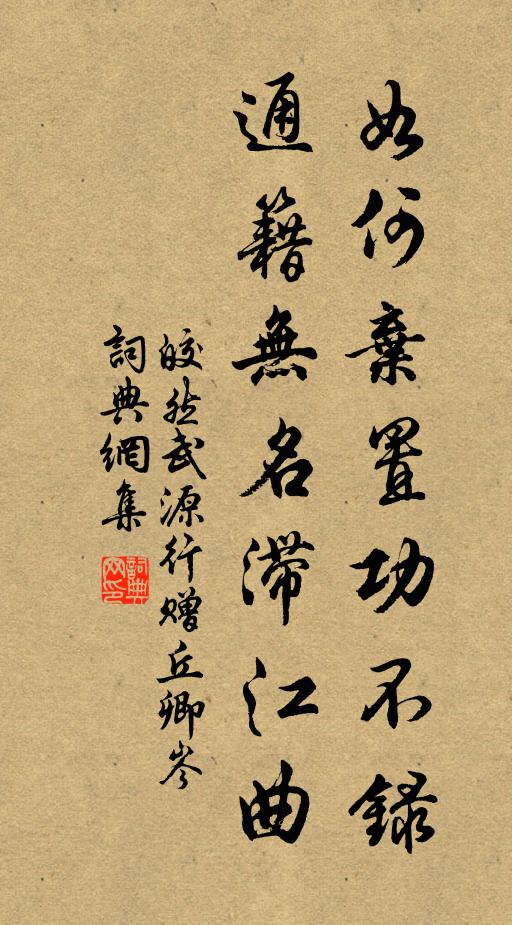 如何棄置功不錄
通籍無名滯江曲
皎然武源行贈丘卿岑
詞典網集
詞典网印